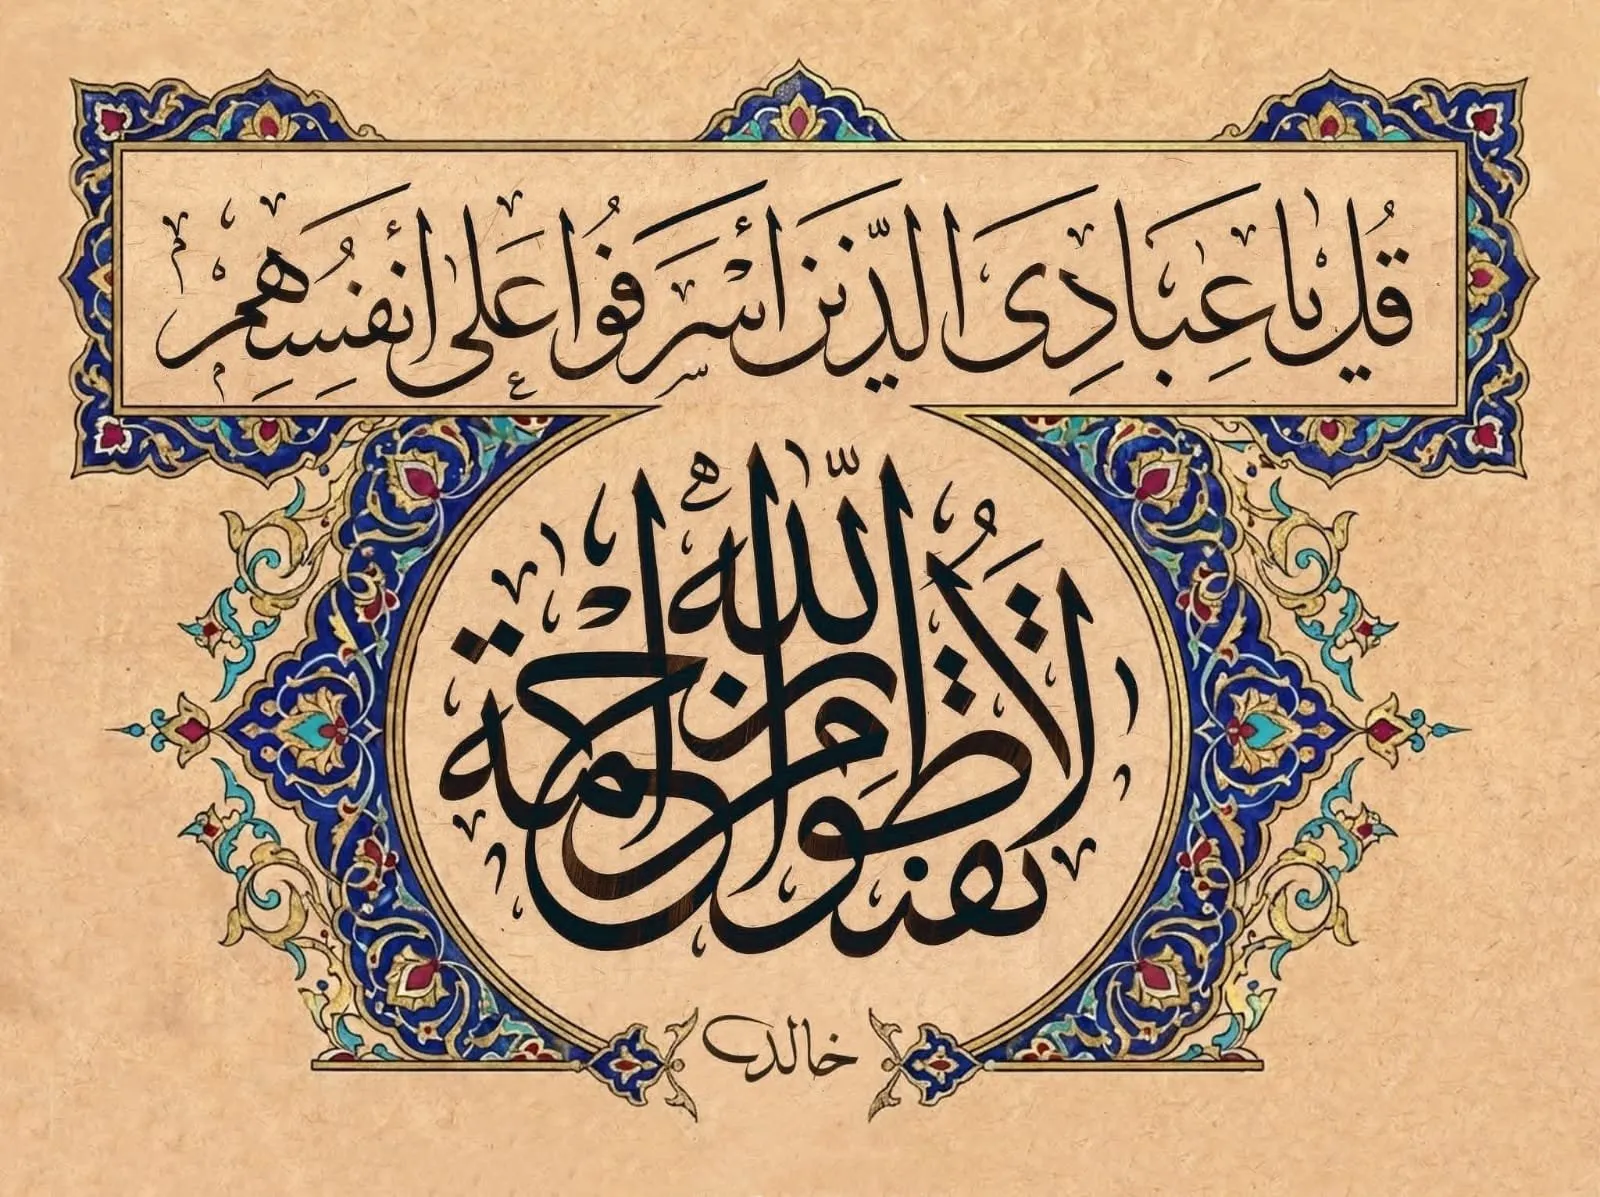 قُلْ يَا عِبَادِيَ الَّذِينَ أَسْرَفُوا عَلَى أَنفُسِهِمْ
لَا تَقْنَطُوا مِن رَّحْمَةِ اللَّهِ
خالد